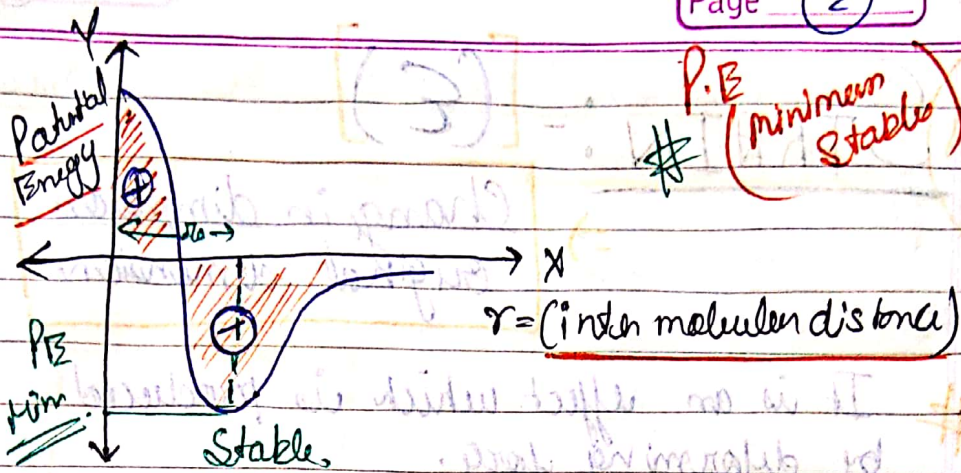 Page 2
Y
Potential
Energy
P.E
(minimum
Stable)
#
+
r₀
X
r = (inter molecular distance)
PE
Min.
Stable.